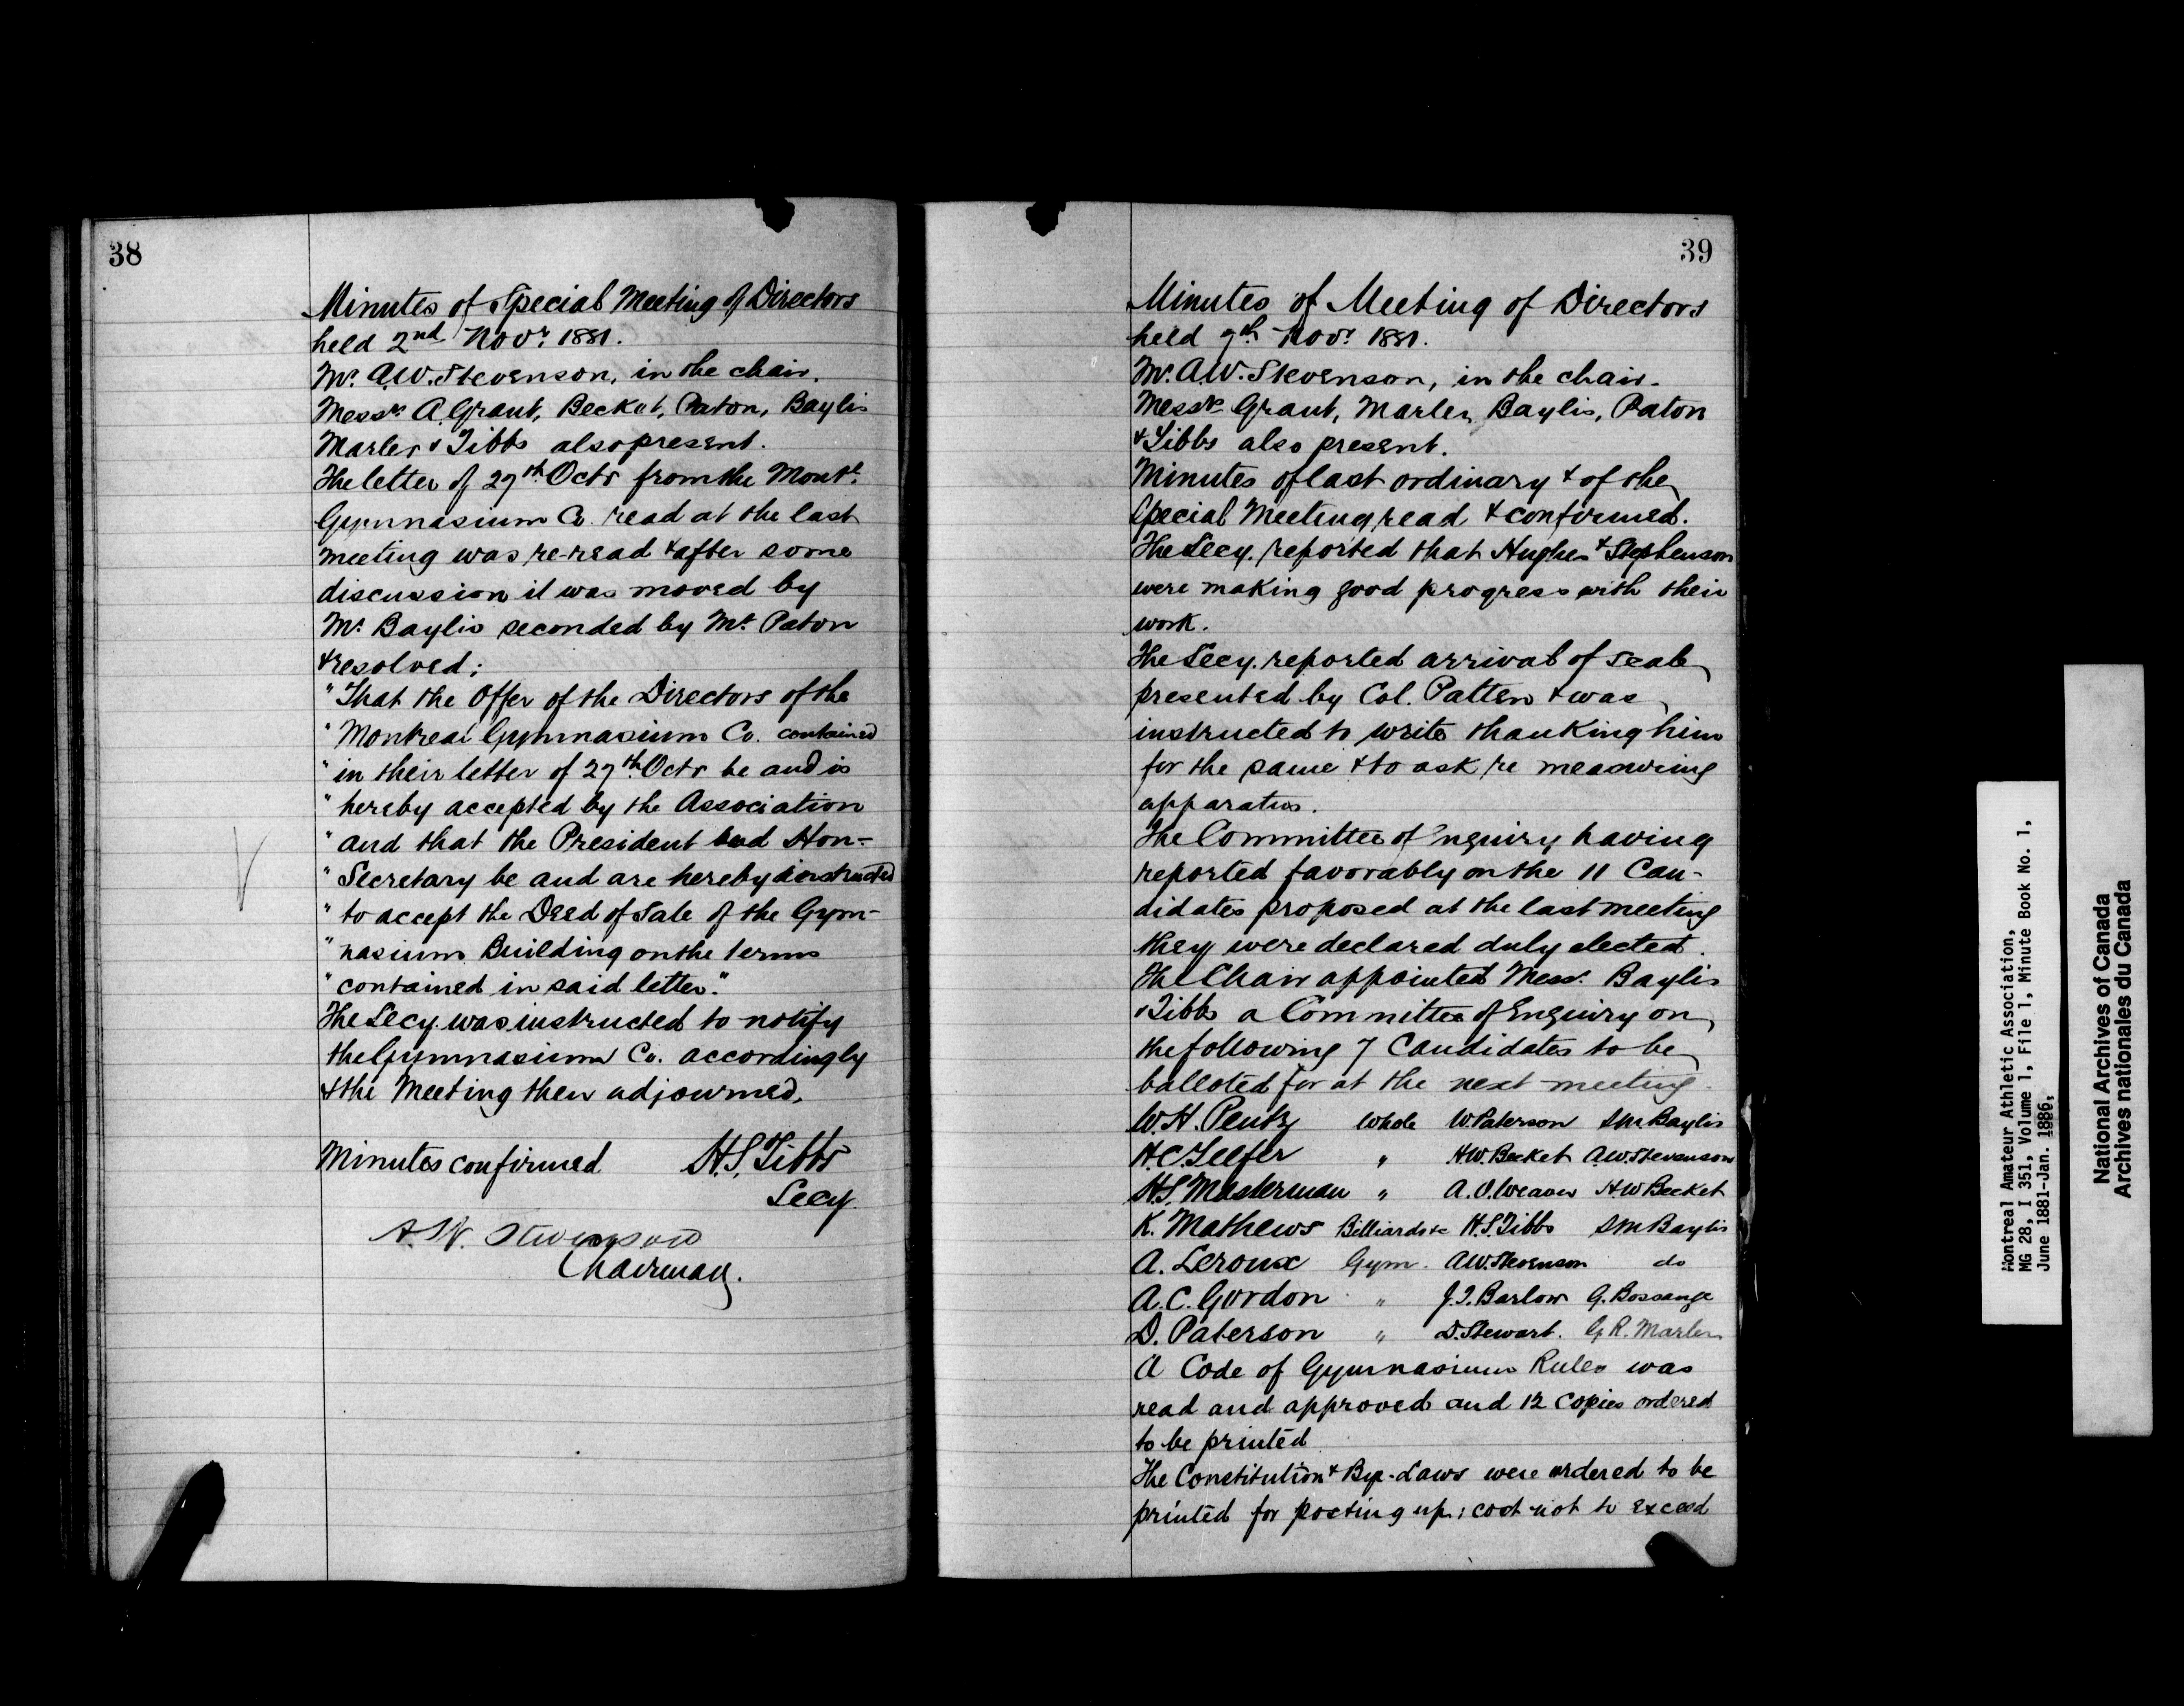 38
Minutes of Special Meeting of Directors
held 2nd Novr 1881.
Mr. A.W. Stevenson, in the chair.
Messrs A. Grant, Becket, Paton, Baylis
Marler & Tibbs also present.
The letter of 27th Octr from the Montl
Gymnasium Co. read at the last
meeting was re-read & after some
discussion it was moved by
Mr. Baylis seconded by Mr. Paton
& resolved;
"That the Offer of the Directors of the
"Montreal Gymnasium Co. contained
"in their letter of 27th Octr be and is
"hereby accepted by the Association
"and that the President and Hon-
"Secretary be and are hereby instructed
"to accept the Deed of Sale of the Gym-
"nasium Building on the terms
"contained in said letter."
The Secy. was instructed to notify
the Gymnasium Co. accordingly
& the Meeting then adjourned.
Minutes confirmed H.S. Tibbs
Secy.
A.W. Stevenson
Chairman.
39
Minutes of Meeting of Directors
held 9th Novr 1881.
Mr. A.W. Stevenson, in the chair.
Messrs Grant, Marler, Baylis, Paton
& Tibbs also present.
Minutes of last ordinary & of the
Special Meeting read & confirmed.
The Secy. reported that Hughes & Stephenson
were making good progress with their
work.
The Secy. reported arrival of scale
presented by Col. Patten & was
instructed to write thanking him
for the same & to ask re measuring
apparatus.
The Committee of Enquiry having
reported favorably on the 11 Can-
didates proposed at the last meeting
they were declared duly elected.
The Chair appointed Messr. Baylis
& Tibbs a Committee of Enquiry on
the following 7 Candidates to be
balloted for at the next meeting.
W.H. Pentz Whole W. Paterson S M Baylis
H.C. " H.W. Becket A.W. Stevenson
H.S. Masterman " A.O. Weaver H W Becket
K. Mathews Billiards &c H.S. Tibbs S M Baylis
A. Leroux Gym. A W. Stevenson do
A.C. Gordon " J.T. Barlow G. Bossange
D. Paterson " D. Stewart. G R. Marler
A Code of Gymnasium Rules was
read and approved and 12 copies ordered
to be printed
The Constitution & Bye-Laws were ordered to be
printed for posting up; cost not to exceed
Montreal Amateur Athletic Association,
MG 28, I 351, Volume 1, File 1, Minute Book No. 1,
June 1881-Jan. 1886,
National Archives of Canada
Archives nationales du Canada